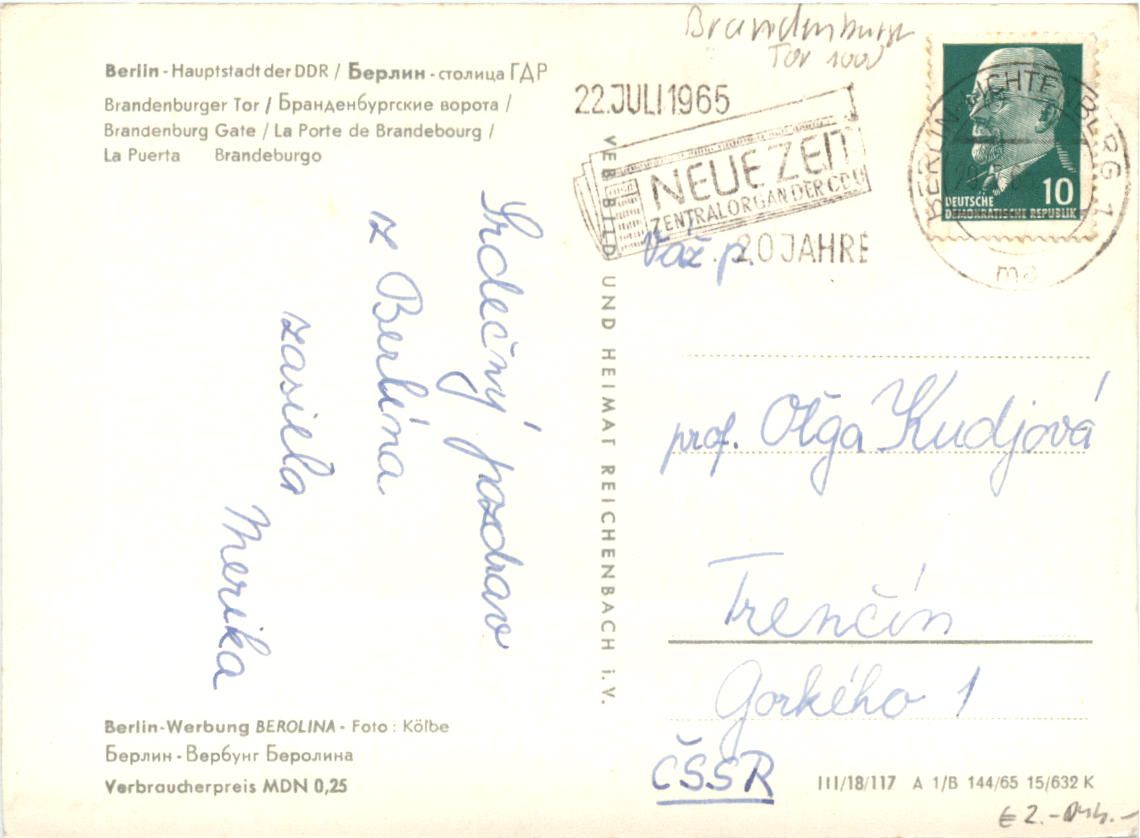 Berlin - Hauptstadt der DDR / Берлин - столица ГДР
Brandenburger Tor / Бранденбургские ворота /
Brandenburg Gate / La Porte de Brandebourg /
La Puerta Brandeburgo
Srdečný pozdrav
z Berlína
zasiela
Merika
Berlin-Werbung BEROLINA - Foto: Kölbe
Берлин - Вербунг Беролина
Verbraucherpreis MDN 0,25
VEB BILD UND HEIMAT REICHENBACH i. V.
Brandenburger
Tor
22.JULI 1965
NEUE ZEIT
ZENTRALORGAN DER CDU
20 JAHRE
BERLIN-LICHTENBERG 1
mc
10
DEUTSCHE
DEMOKRATISCHE REPUBLIK
Váž. p.
prof. Oľga Kudjová
Trenčín
Gorkého 1
ČSSR
III/18/117 A 1/B 144/65 15/632 K
€ 2.-